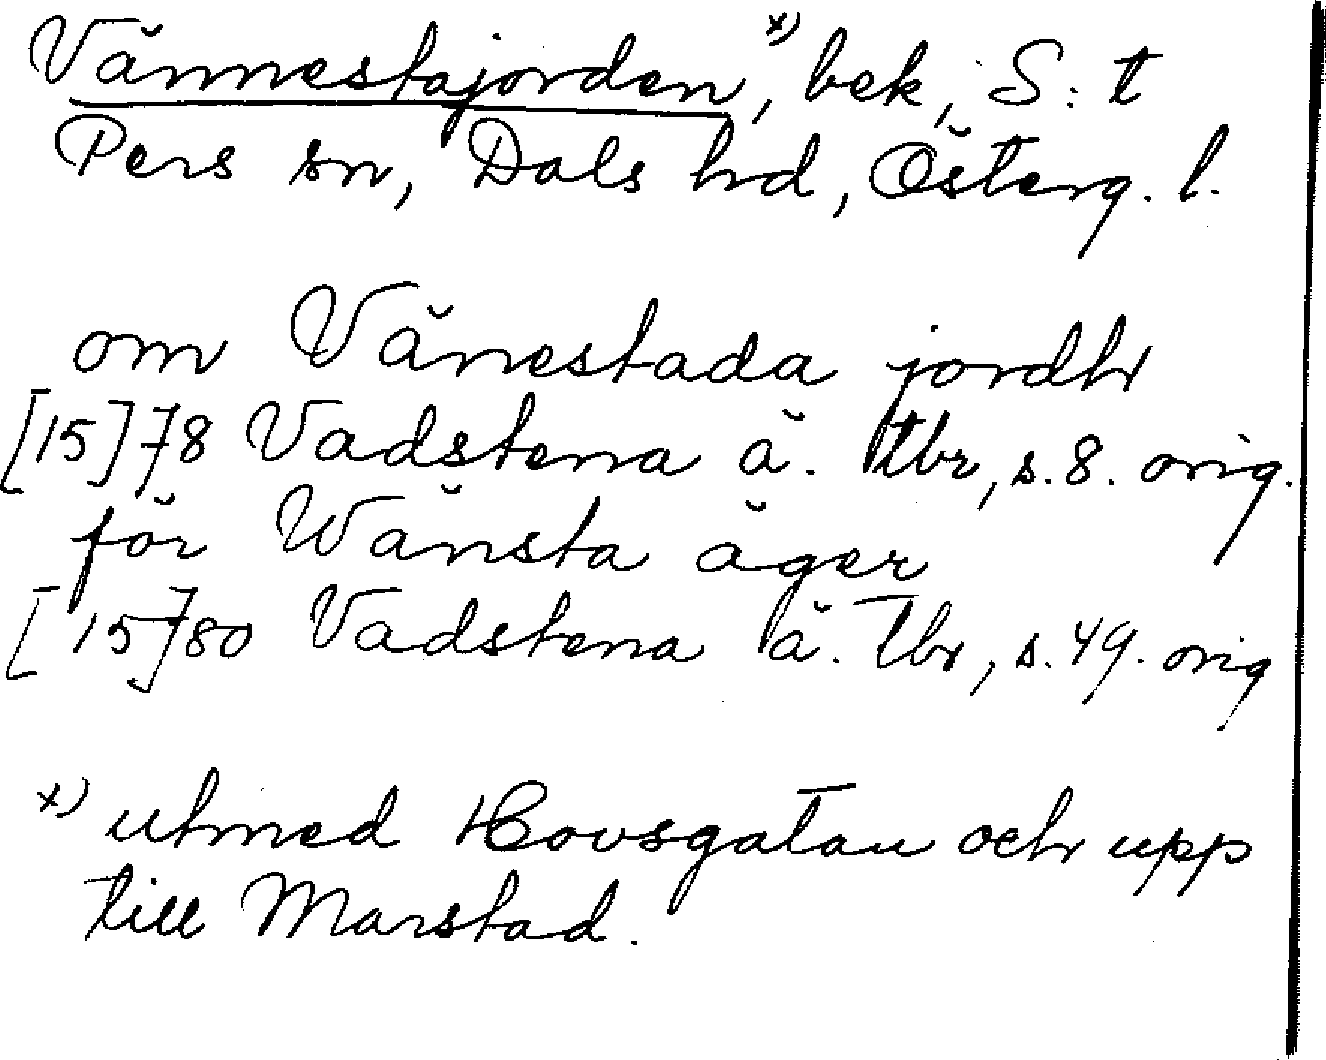 Vännestajorden,ˣ⁾ bek, S:t
Pers sn, Dals hd, Österg. l.
om Vänestada jordh
[15]78 Vadstena ä. tbr, s. 8. orig.
för Wänsta äger
[15]80 Vadstena ä. tbr, s. 49. orig
x) utmed Hovsgatan och upp
till Marstad.